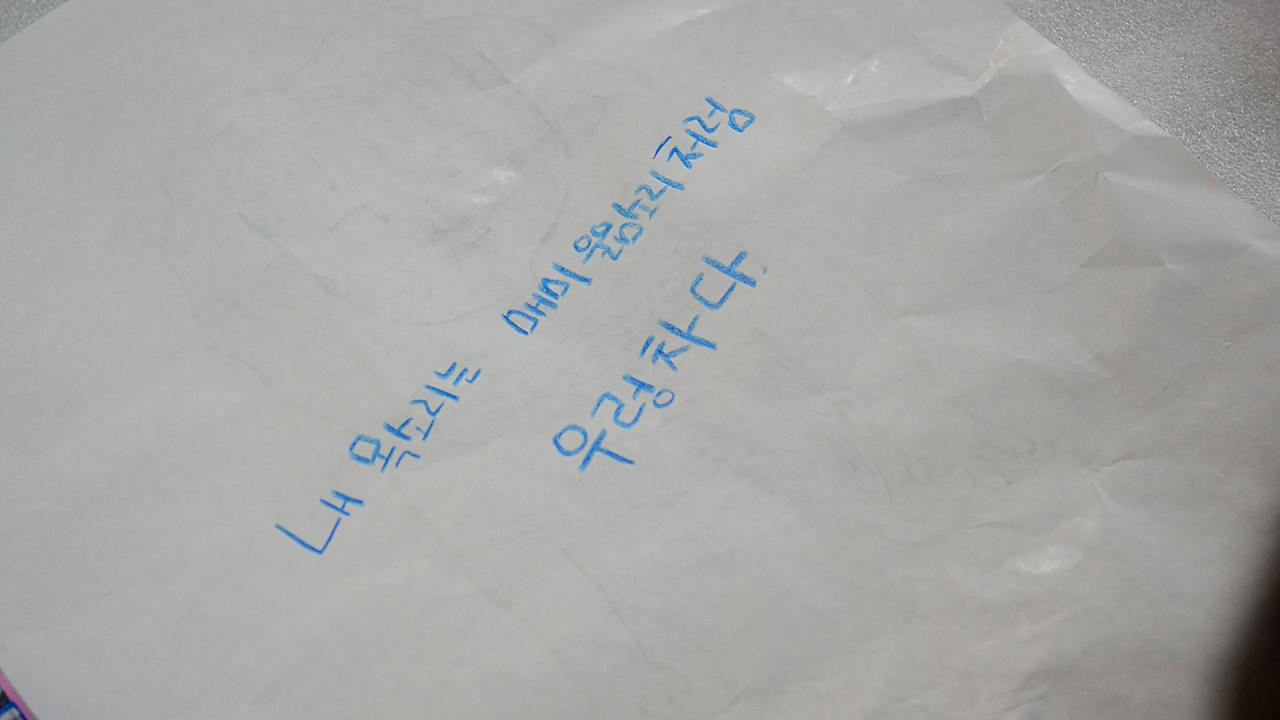 내 목소리는 매미 울음소리처럼
우렁차다.